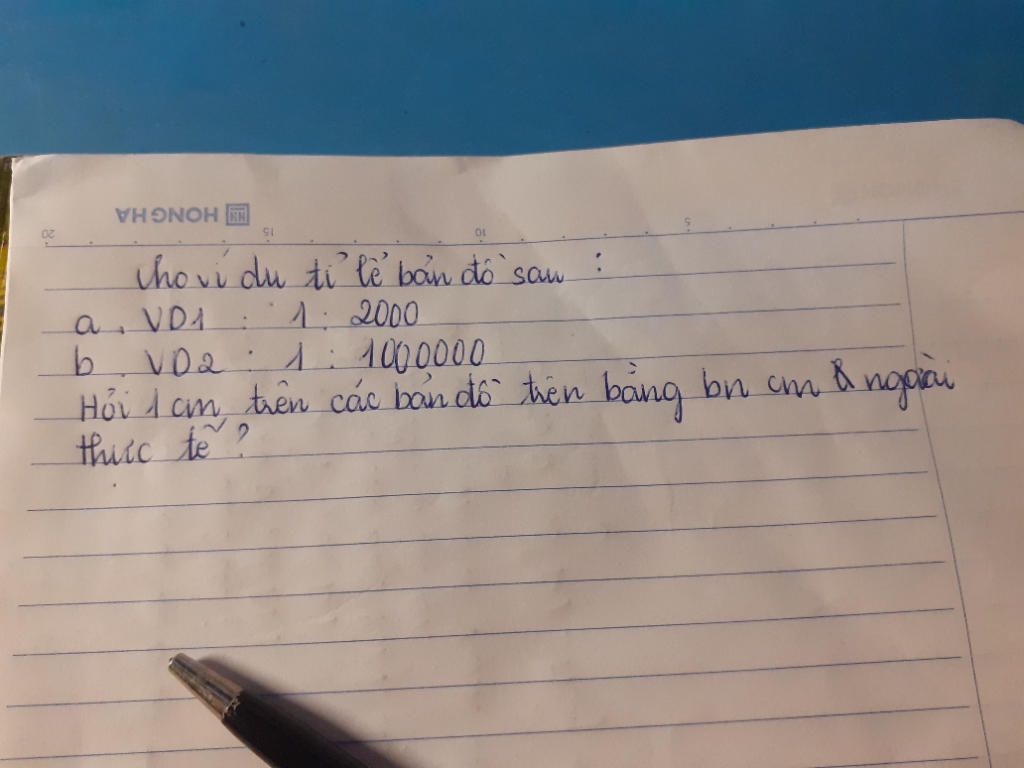 HONG HA
20 15 10 5
Cho ví du tỉ lể bản đồ sau :
a. VD1 : 1 : 2000
b. VD2 : 1 : 1000000
Hỏi 1 cm trên các bản đồ trên bằng bn cm & ngoài
thực tế ?